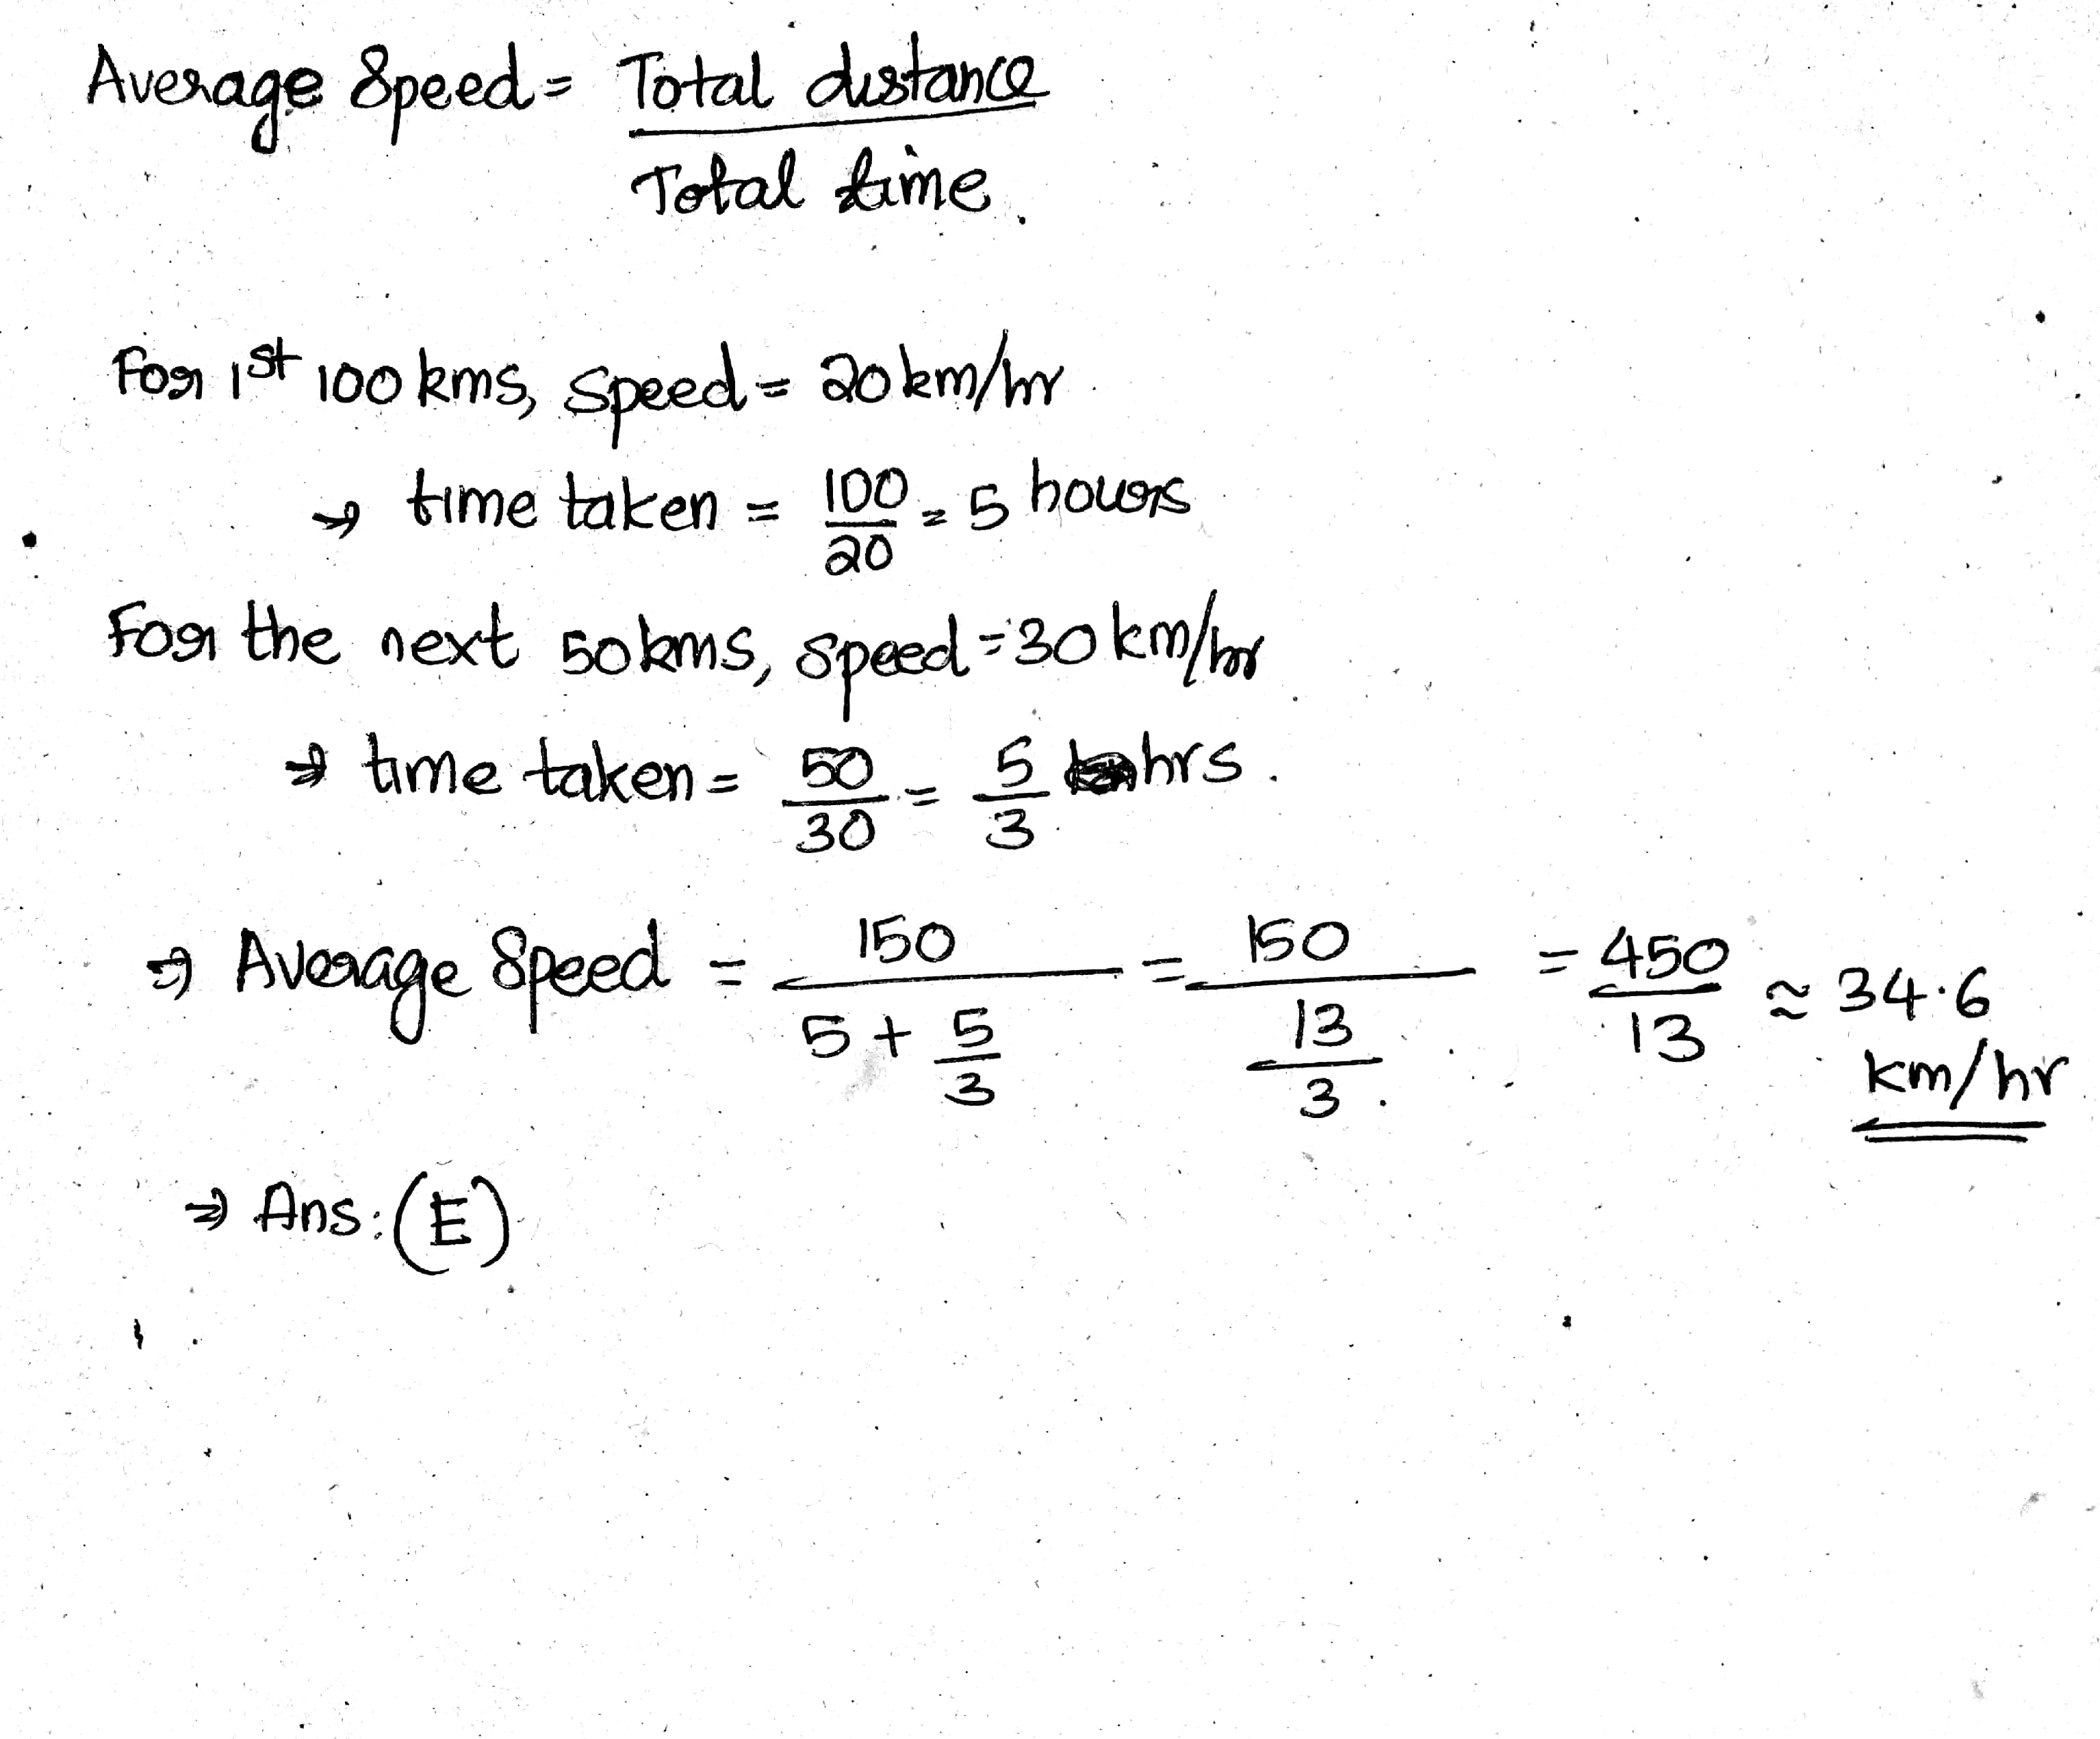 Average Speed = Total distance
Total time.
For 1st 100 kms, speed = 20 km/hr
⇒ time taken = 100/20 = 5 hours
For the next 50 kms, speed = 30 km/hr
⇒ time taken = 50/30 = 5/3 hrs.
⇒ Average Speed = 150/(5 + 5/3) = 150/(13/3) = 450/13 ≈ 34.6
km/hr
⇒ Ans: (E)